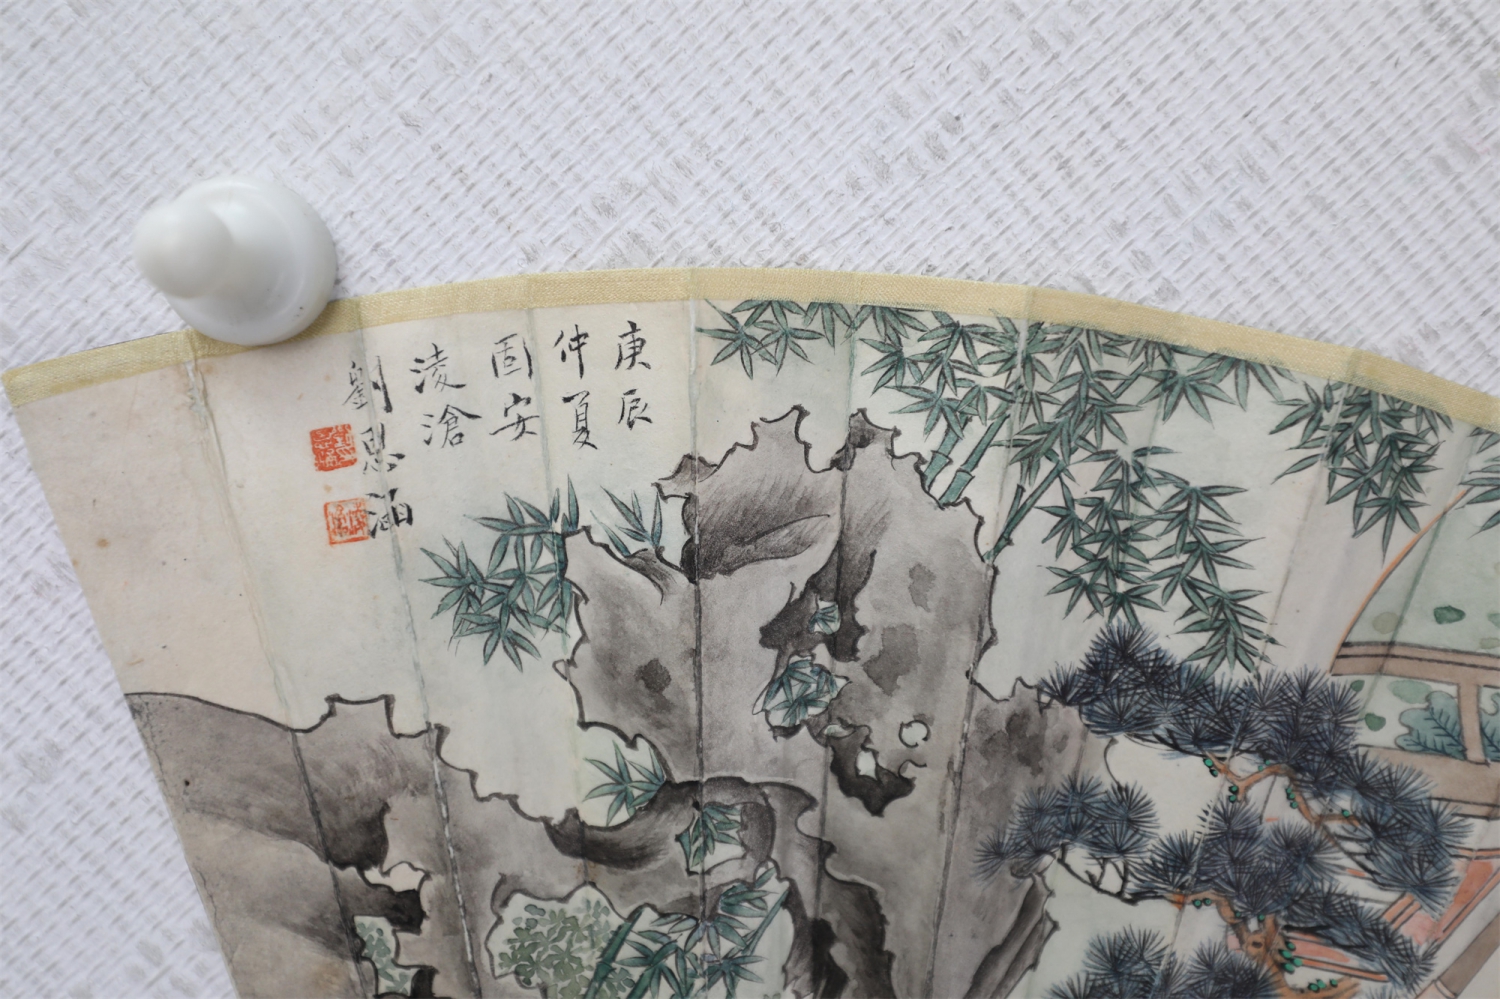 庚辰
仲夏
固安
淩滄
劉恩涵